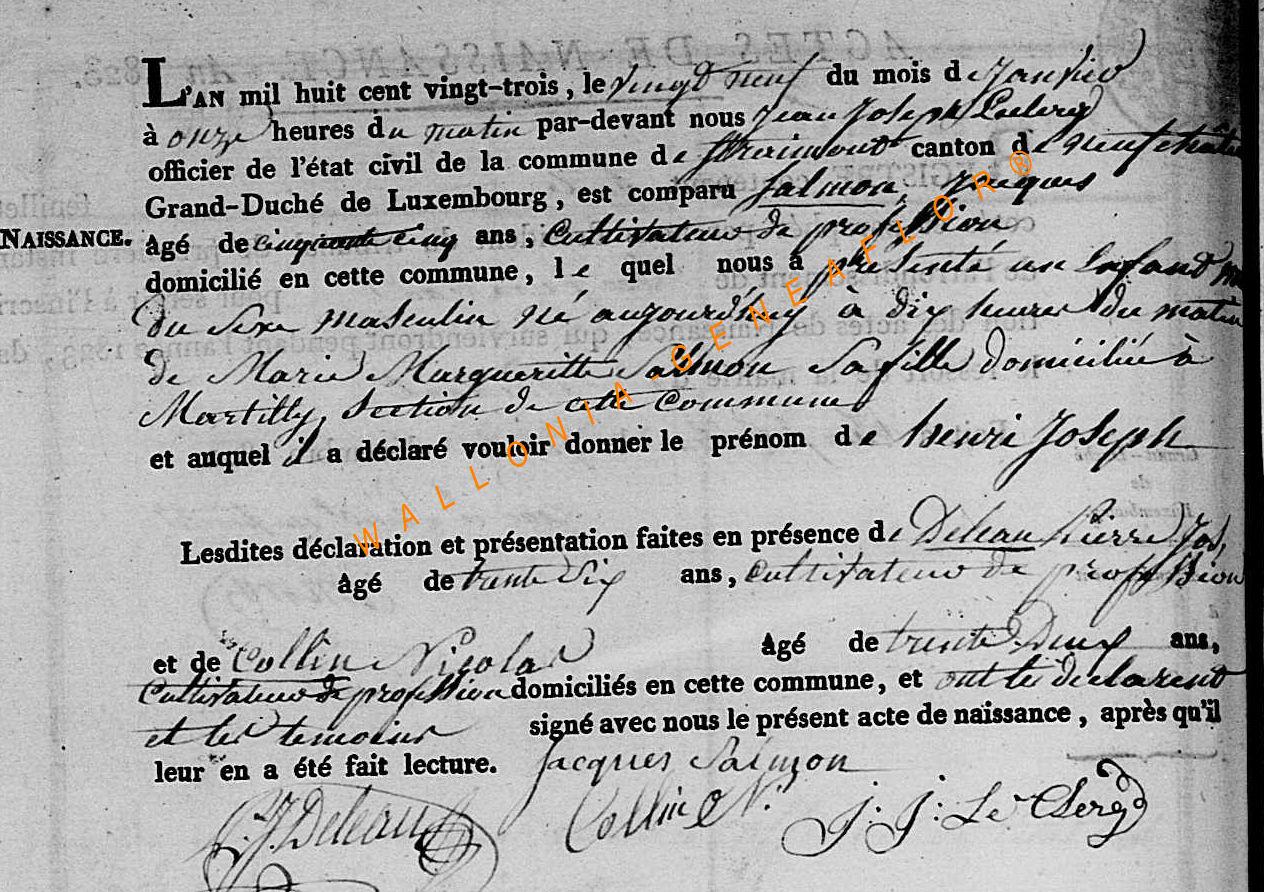 L'AN mil huit cent vingt-trois, le vingt neuf du mois de Janvier
à onze heures du matin par-devant nous Jean Joseph Leclerq
officier de l'état civil de la commune de Straimont canton de neufchateau
Grand-Duché de Luxembourg, est comparu Salmon, Jacques
NAISSANCE. âgé de cinquante cinq ans, Cultivateur de profession
domicilié en cette commune, le quel nous a présenté un Enfant
du sexe masculin né aujourd'huy à dix heures du matin
de Marie Margueritte Salmon Sa fille domiciliée à
Martilly, Section de cette Commune
et auquel il a déclaré vouloir donner le prénom de henri Joseph
Lesdites déclaration et présentation faites en présence de Deleau Pierre Jos,
âgé de trente Six ans, Cultivateur de profession
et de Collin Nicolas âgé de trente Deux ans,
Cultivateur de profession domiciliés en cette commune, et ont les declarent
et les temoins signé avec nous le présent acte de naissance, après qu'il
leur en a été fait lecture. Jacques Salmon
P. J. Deleau Collin N. J: J: Le Clerq
WALLONIA-GENEAFLOR®